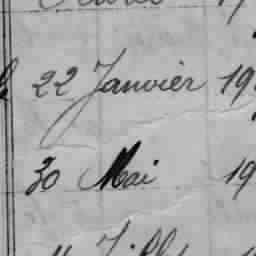 22 Janvier 19
30 Mai 19